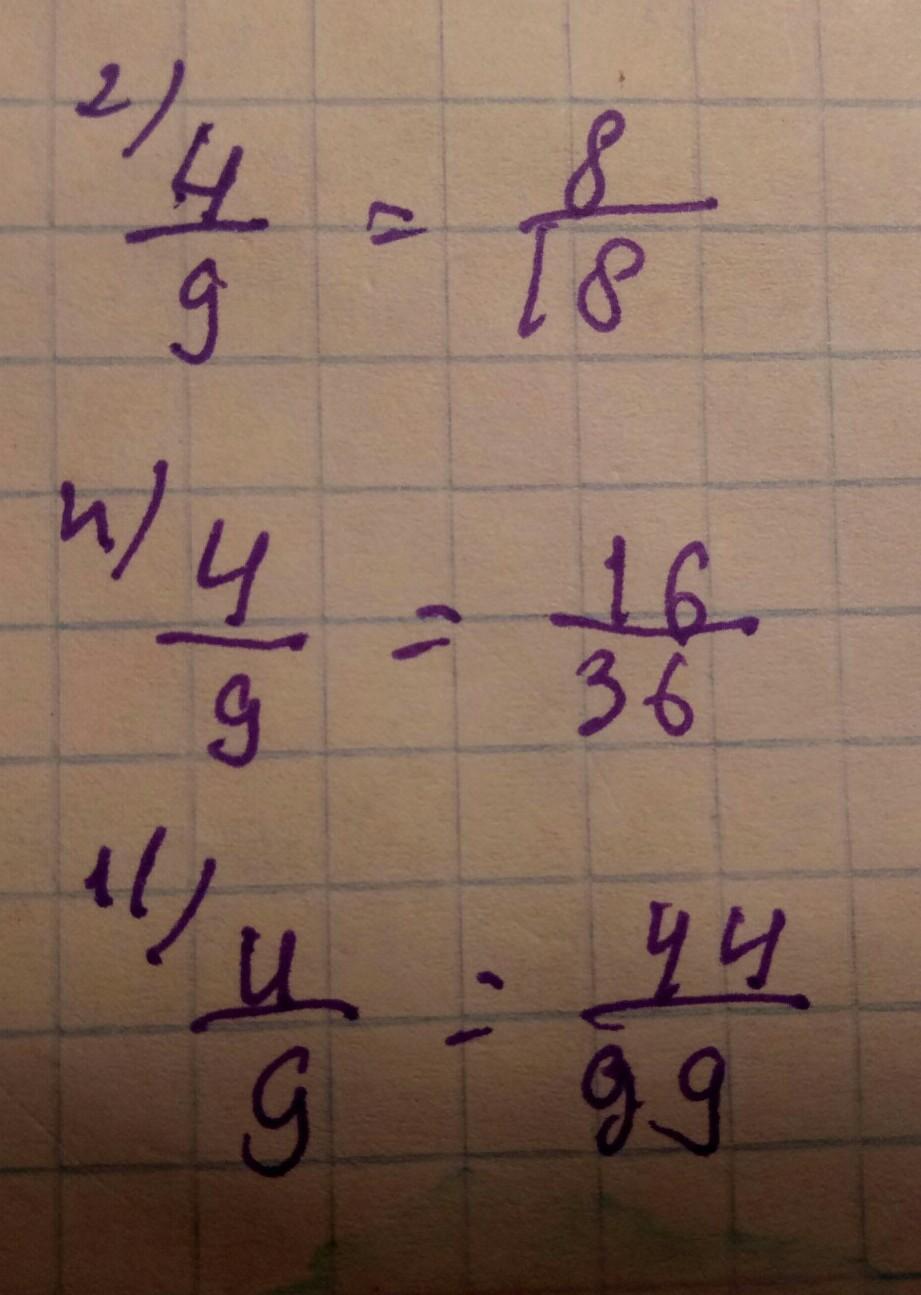 2)
4/9 = 8/18
4)
4/9 = 16/36
11)
4/9 = 44/99